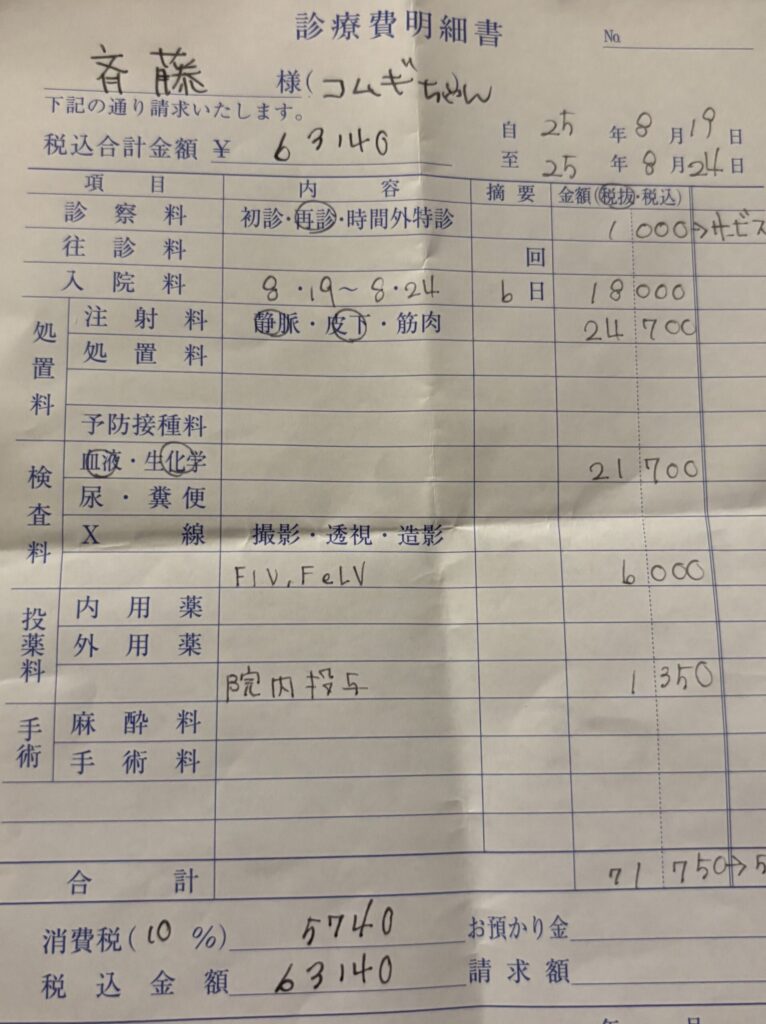 診療費明細書
No.
斉藤 様(コムギちゃん
下記の通り請求いたします。
税込合計金額 ¥ 63140
自 25 年 8 月 19 日
至 25 年 8 月 24 日
項目 内容 摘要 金額(税抜・税込)
診察料 初診・再診・時間外特診 1 000→サービス
往診料 回
入院料 8・19〜8・24 6日 18 000
処置料
注射料 静脈・皮下・筋肉 24 700
処置料
予防接種料
検査料
血液・生化学 21 700
尿・糞便
X線 撮影・透視・造影
FIV, FeLV 6 000
投薬料
内用薬
外用薬
院内投与 1 350
手術
麻酔料
手術料
合計 71 750→5
消費税(10%) 5740 お預かり金
税込金額 63140 請求額
年 月